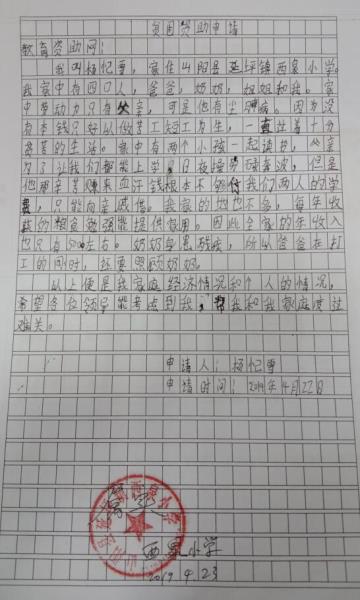 贫困资助申请
教育资助网：
我叫杨忆雪，家住山阳县延坪镇西泉小学。
我家中有四口人，爸爸，奶奶，姐姐和我。家
中劳动力只有父亲，可是他有尘肺病。因为没
有本钱只好以做苦工短工为生，一直过着十分
贫苦的生活。家中有两个小孩一起读书，父亲
为了让我们都能上学，日夜操劳碌奔波，但是
他那辛苦赚来血汗钱根本不够付我们两人的学
费，只能向亲戚借。我家的地也不多，每年收
获的粮食勉强能提供家用。因此全家的年收入
也只有5000左右。奶奶身患残疾，所以爸爸在打
工的同时，还要照顾奶奶。
以上便是我家庭经济情况和个人的情况，
希望各位领导能考虑到我，帮我和我家庭度过
难关。
申请人：杨忆雪
申请时间：2019年4月22日
属实
西泉小学
2019.4.23